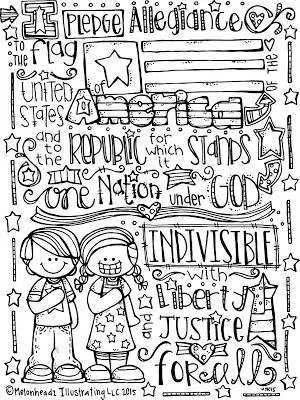 I PLEDGE Allegiance
to the flag
of the
UNITED STATES of America
and to the REPUBLIC for which it STANDS
one Nation under GOD
INDIVISIBLE
with
Liberty
and JUSTICE
for all
©Melonheadz Illustrating LLC 2015